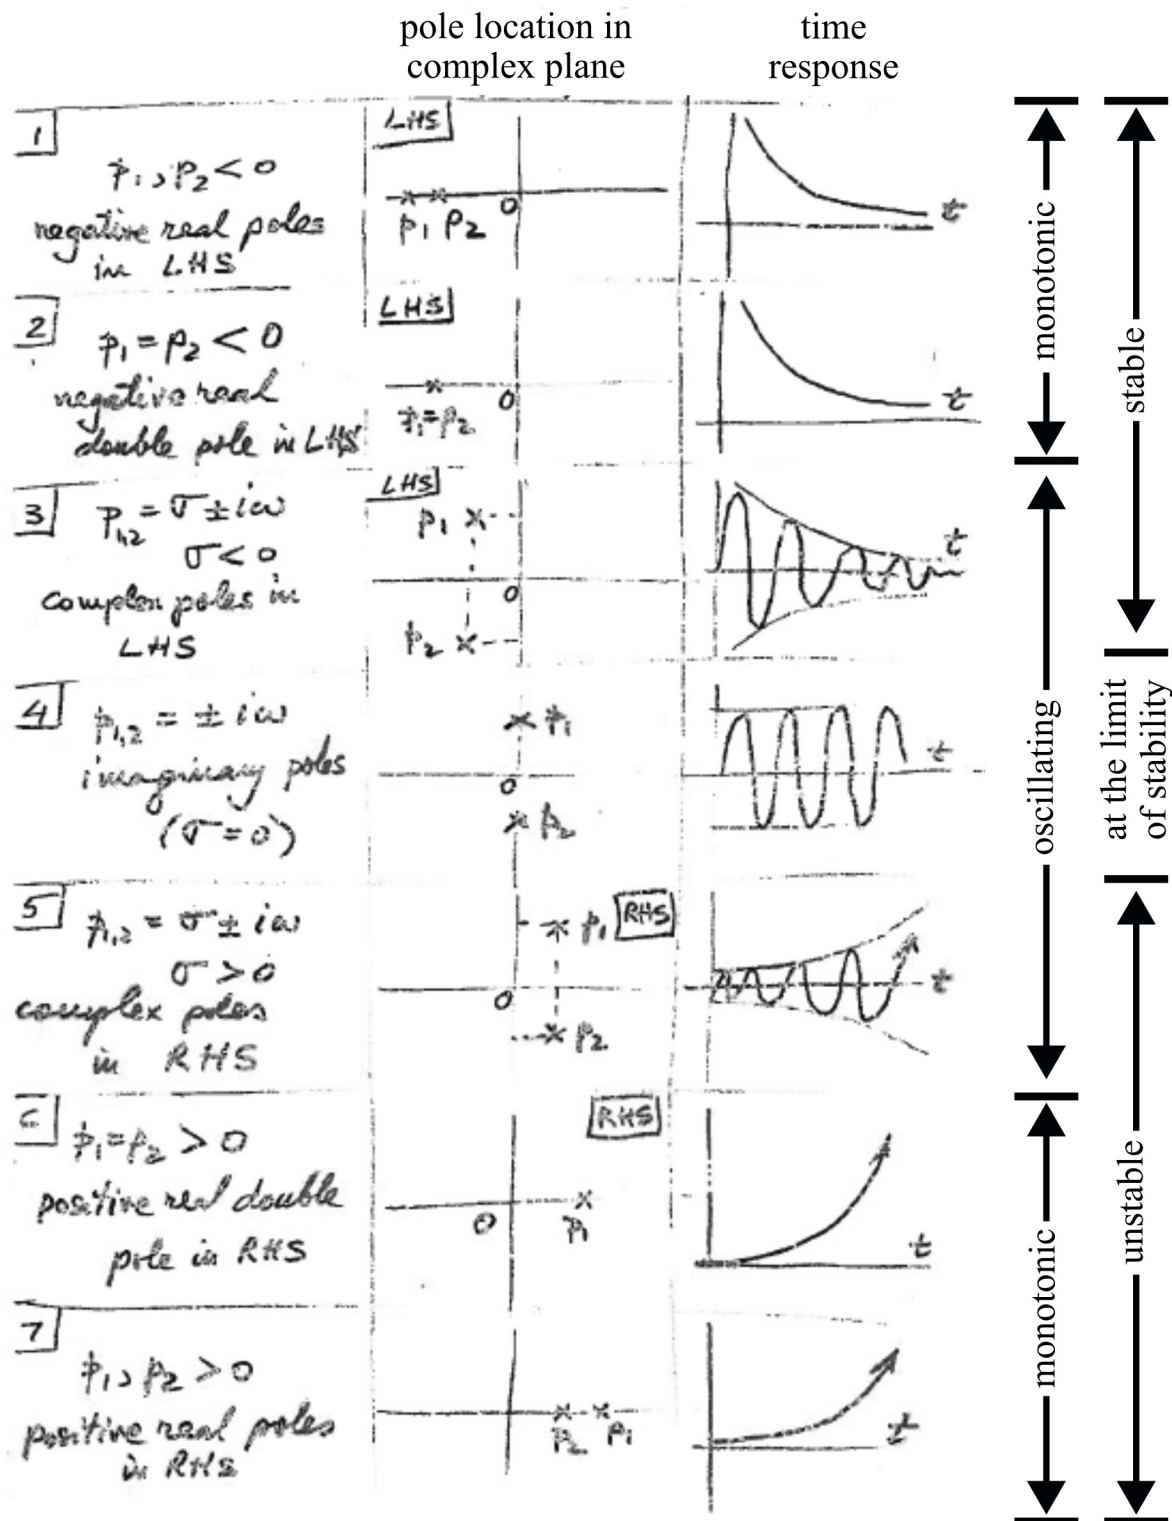 pole location in
complex plane
time
response
1
p₁, p₂ < 0
negative real poles
in LHS
LHS
p₁ p₂
0
t
2
p₁ = p₂ < 0
negative real
double pole in LHS
LHS
p₁=p₂
0
t
3
p₁,₂ = σ ± iω
σ < 0
complex poles in
LHS
LHS
p₁
0
p₂
t
4
p₁,₂ = ± iω
imaginary poles
(σ = 0)
p₁
0
p₂
t
5
p₁,₂ = σ ± iω
σ > 0
complex poles
in RHS
RHS
p₁
0
p₂
t
6
p₁ = p₂ > 0
positive real double
pole in RHS
RHS
0
p₁
t
7
p₁, p₂ > 0
positive real poles
in RHS
p₂ p₁
t
monotonic
oscillating
monotonic
stable
at the limit
of stability
unstable